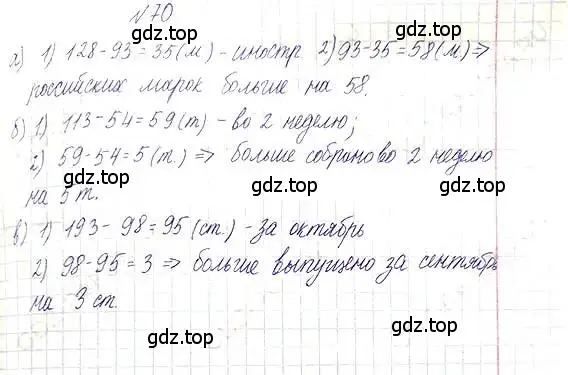 №70
а) 1) 128-93=35(м) - иностр. 2) 93-35=58(м) ⇒
российских марок больше на 58.
gdz.top gdz.top
б) 1) 113-54=59(т) - во 2 неделю;
2) 59-54=5(т.) ⇒ больше собрано во 2 неделю
gdz.top gdz.top
на 5 т.
в) 1) 193-98=95(ст.) - за октябрь
gdz.top gdz.top
2) 98-95=3 ⇒ больше выпущено за сентябрь
на 3 ст.
gdz.top gdz.top